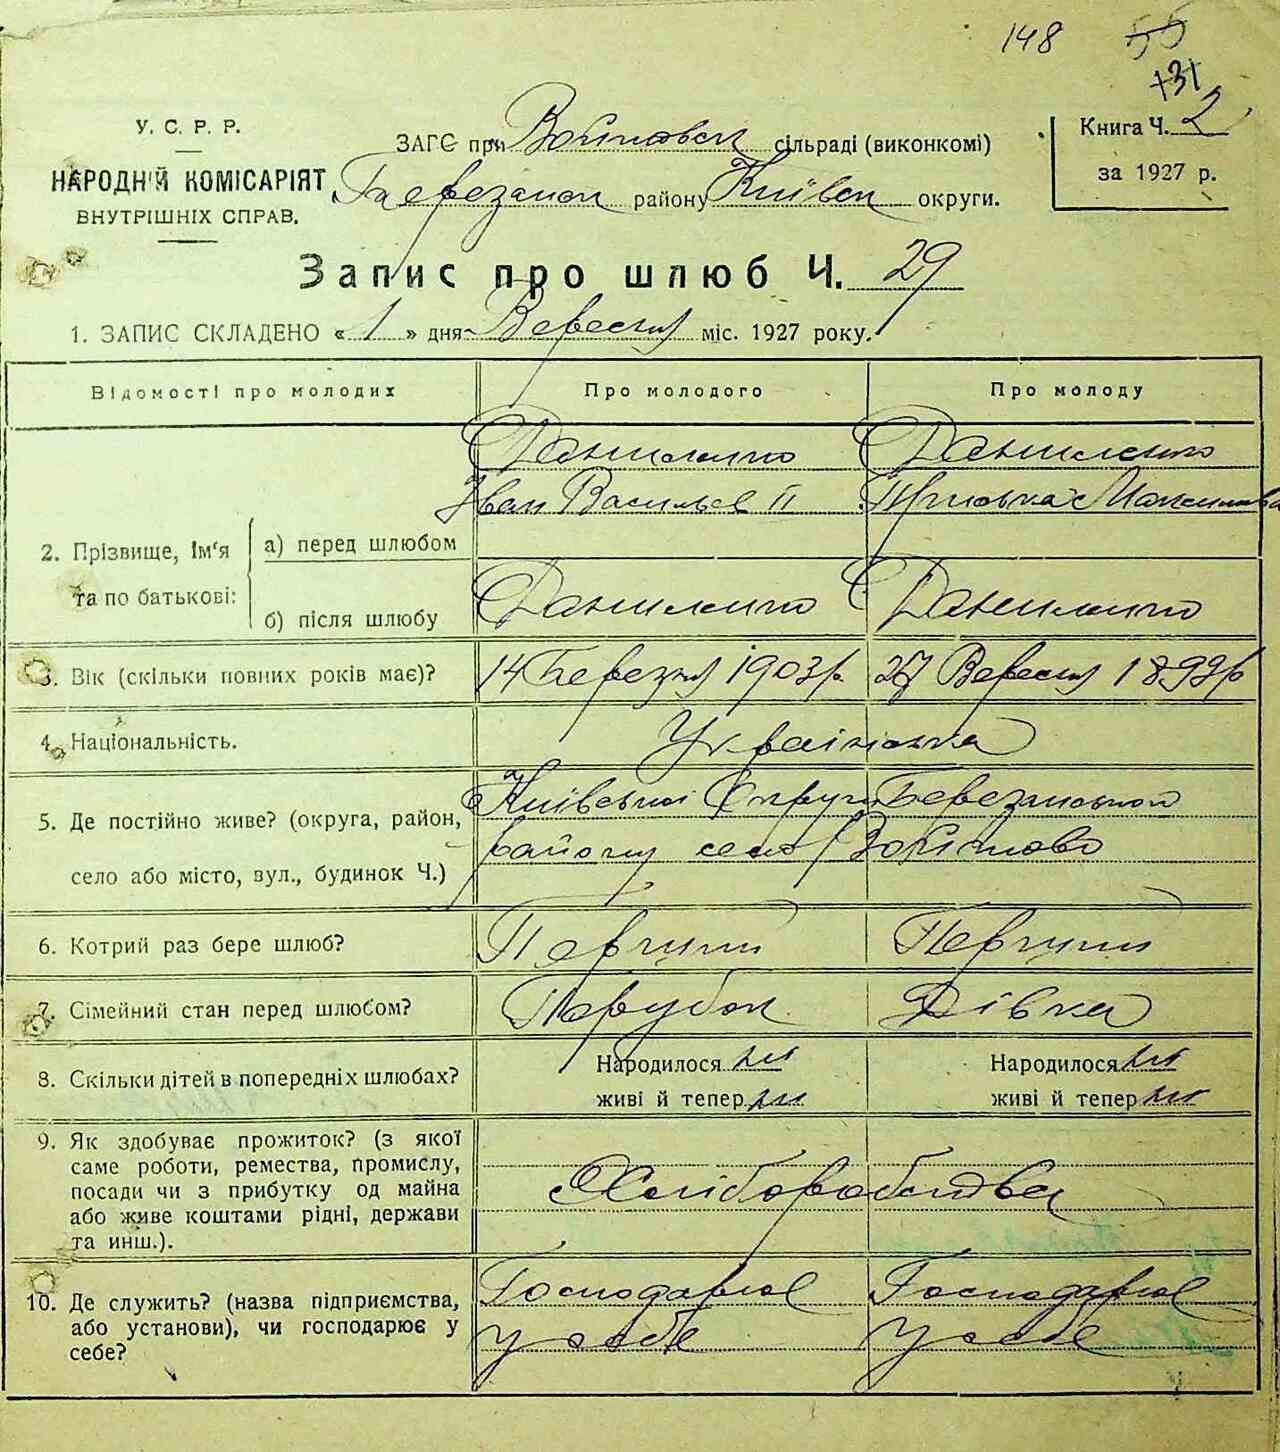 148 55
131
У. С. Р. Р.
НАРОДНІЙ КОМІСАРІЯТ
ВНУТРІШНІХ СПРАВ.
ЗАГС при Войтовск сільраді (виконкомі)
Березанск району Київск округи.
Книга Ч. 2
за 1927 р.
Запис про шлюб Ч. 29
1. ЗАПИС СКЛАДЕНО « 1 » дня Вересня міс. 1927 року.
Відомості про молодих Про молодого Про молоду
2. Прізвище, ім‘я та по батькові:
а) перед шлюбом
Даниленко Даниленко
Іван Васильєв II Пріська Максимова
б) після шлюбу Даниленко Даниленко
3. Вік (скільки повних років має)? 14 Березня 1903р. 27 Вересня 1899р
4. Національність. Українська
5. Де постійно живе? (округа, район, Київської Округи Березанського
село або місто, вул., будинок Ч.) району село Войтово
6. Котрий раз бере шлюб? Перший Перший
7. Сімейний стан перед шлюбом? Парубок Дівка
8. Скільки дітей в попередніх шлюбах? Народилося Народилося
живі й тепер живі й тепер
9. Як здобуває прожиток? (з якої
саме роботи, ремества, промислу,
посади чи з прибутку од майна
або живе коштами рідні, держави
та инш.).
Хліборобства
10. Де служить? (назва підприємства,
або установи), чи господарює у
себе?
Господарює Господарює
у себе у себе